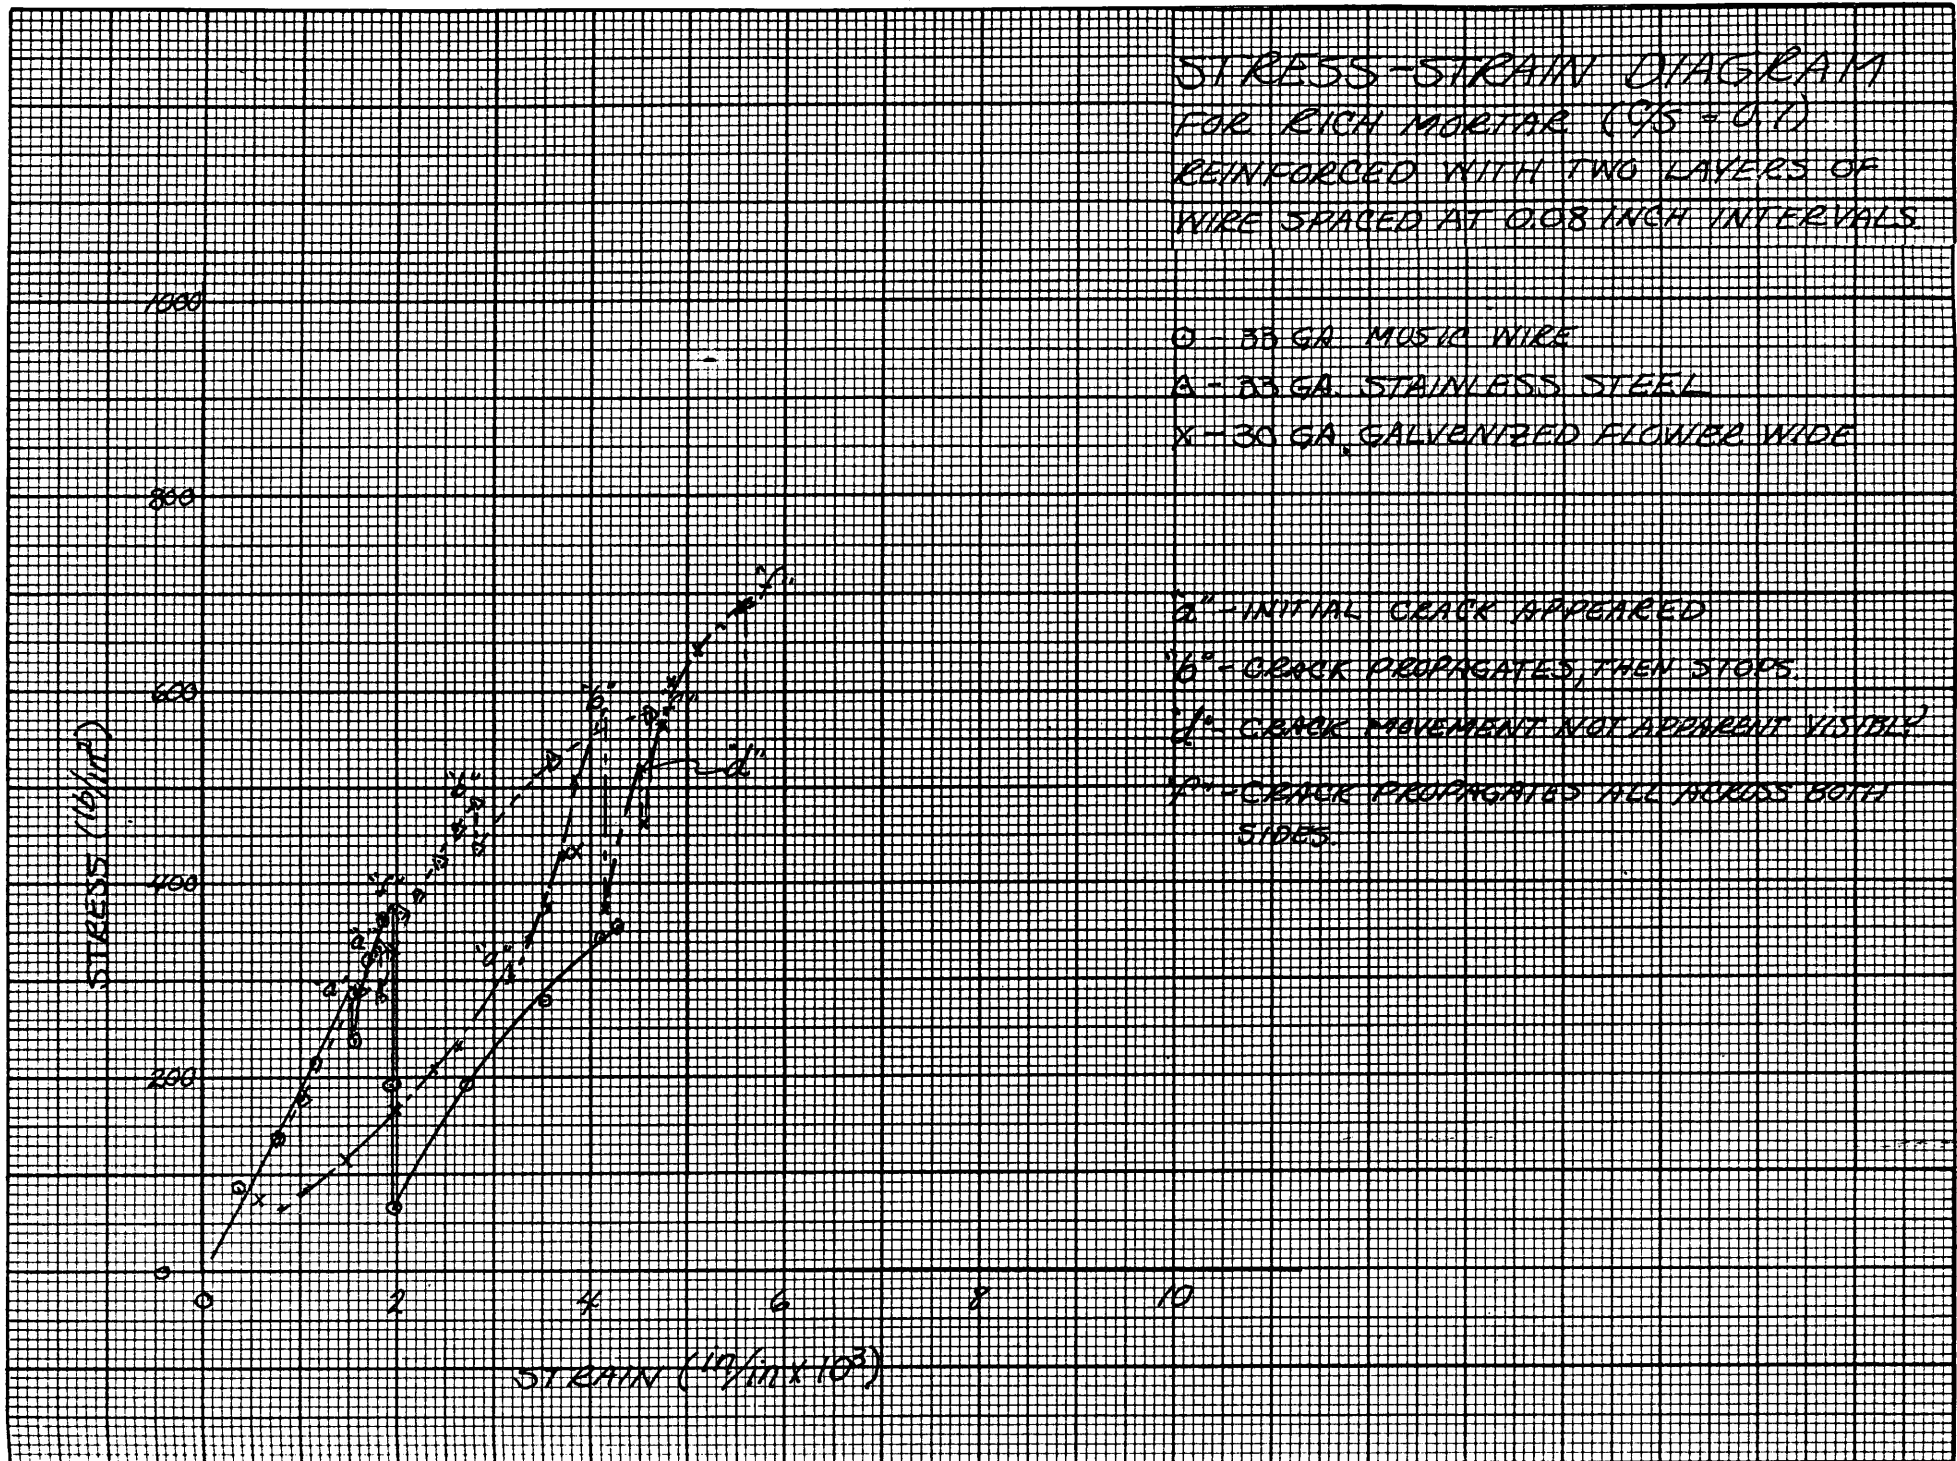 STRESS-STRAIN DIAGRAM
FOR RICH MORTAR (C/S = 0.7)
REINFORCED WITH TWO LAYERS OF
WIRE SPACED AT 0.08 INCH INTERVALS.
O - 33 GA. MUSIC WIRE
Δ - 33 GA. STAINLESS STEEL
X - 30 GA. GALVENIZED FLOWER WIDE
"a" - INITIAL CRACK APPEARED
"b" - CRACK PROPAGATES, THEN STOPS.
"d" - CRACK MOVEMENT NOT APPARENT VISIBLY
"f" - CRACK PROPAGATES ALL ACROSS BOTH
SIDES.
1000
800
600
400
200
0
STRESS (lb/in²)
"f"
"b"
"f"
"d"
"b"
"f"
"a"
"a"
"a"
0 2 4 6 8 10
STRAIN (in/in x 10³)